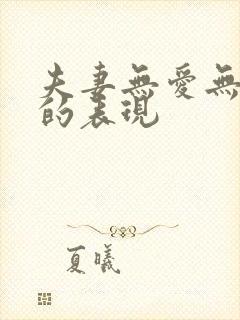 夫妻無愛無
的表現
夏曦